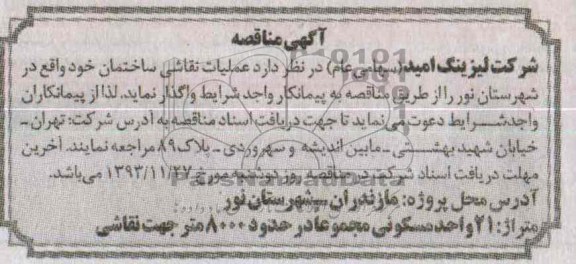 آگهی مناقصه
شرکت لیزینگ امید (سهامی عام) در نظر دارد عملیات نقاشی ساختمان خود واقع در
شهرستان نور را از طریق مناقصه به پیمانکار واجد شرایط واگذار نماید. لذا از پیمانکاران
واجد شرایط دعوت می نماید تا جهت دریافت اسناد مناقصه به آدرس شرکت: تهران -
خیابان شهید بهشتی - مابین اندیشه و سهروردی - پلاک ۸۹ مراجعه نمایند. آخرین
مهلت دریافت اسناد شرکت در مناقصه روز دوشنبه مورخ ۱۳۹۳/۱۱/۲۷ می باشد.
آدرس محل پروژه: مازندران - شهرستان نور
متراژ: ۲۱ واحد مسکونی مجموعا در حدود ۸۰۰۰ متر جهت نقاشی